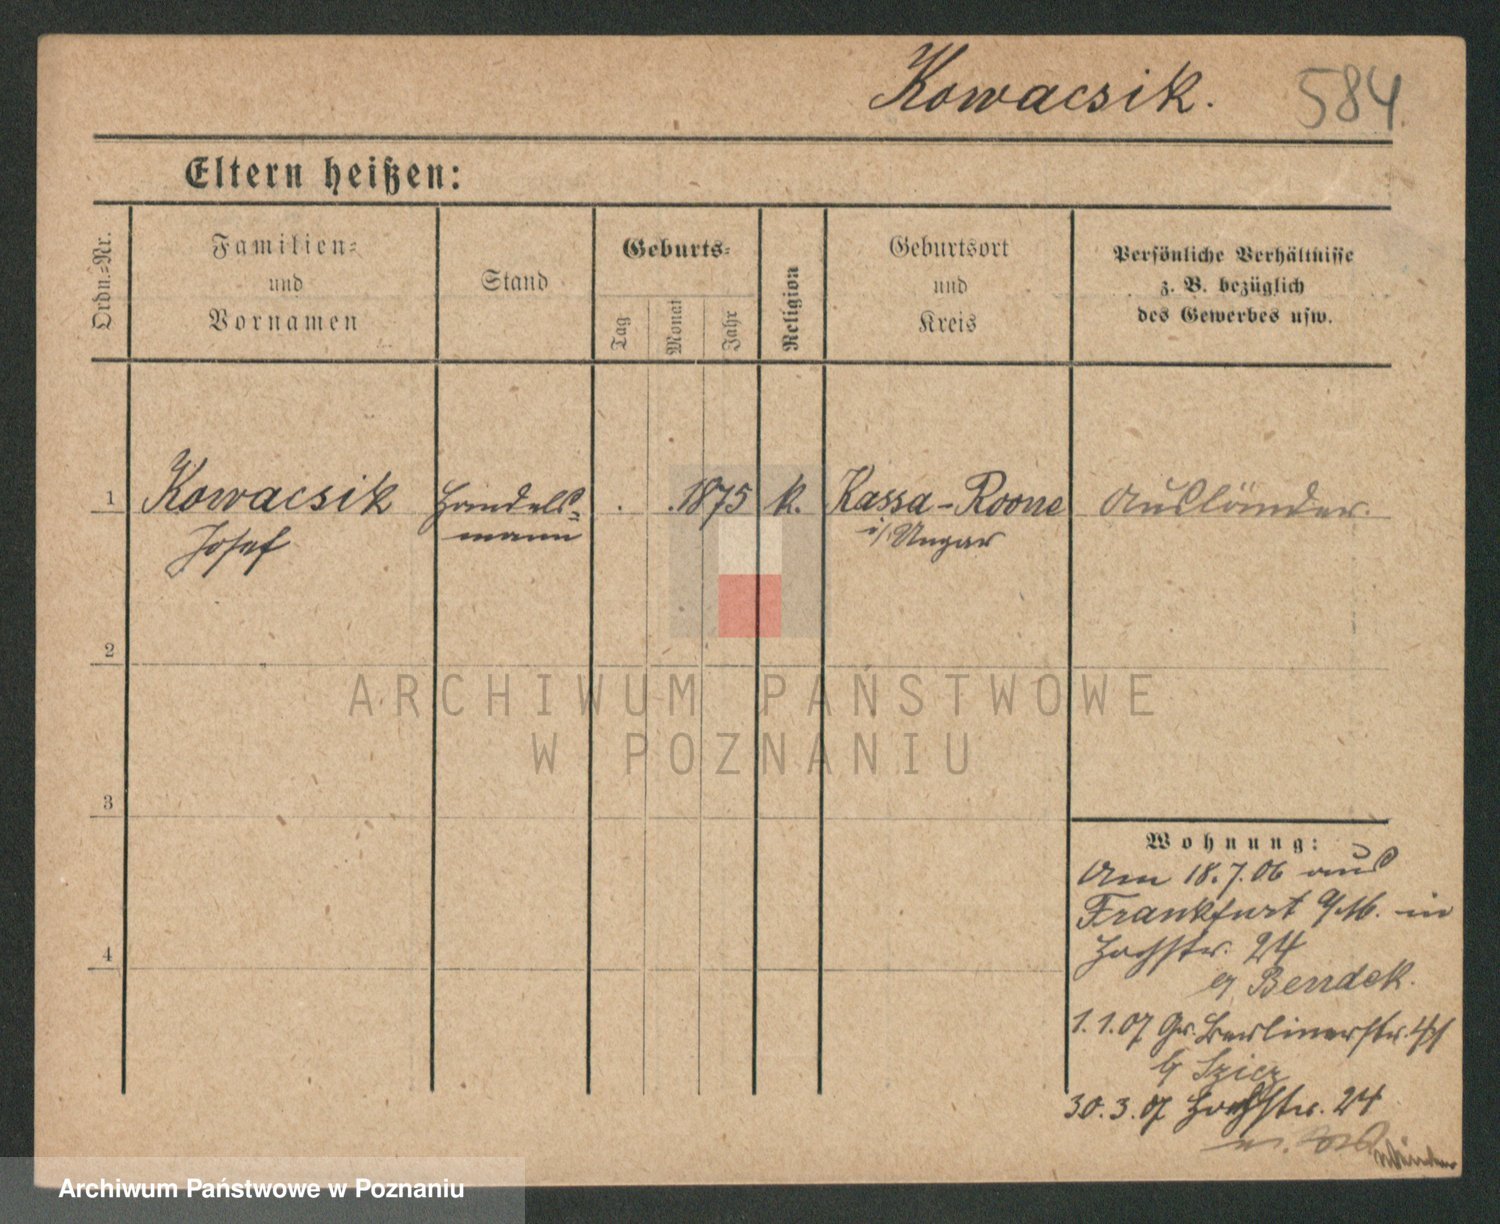 Kowacsik.
584
Eltern heißen:
Ordn.=Nr.
Familien=
und
Vornamen
Stand
Geburts=
Tag
Monat
Jahr
Religion
Geburtsort
und
Kreis
Persönliche Verhältnisse
z. B. bezüglich
des Gewerbes usw.
1 Kowacsik Handels= . . 1875 k. Kassa-Roone Ausländer.
Josef mann i/Ungar
2
3
4
Wohnung:
Am 18.7.06 aus
Frankfurt a/M. in
Hochstr. 24
b/ Bendek.
1.1.07 Gr. Berlinerstr.
b/ Szicz
30.3.07 Hochstr. 24
ARCHIWUM PAŃSTWOWE
W POZNANIU
Archiwum Państwowe w Poznaniu